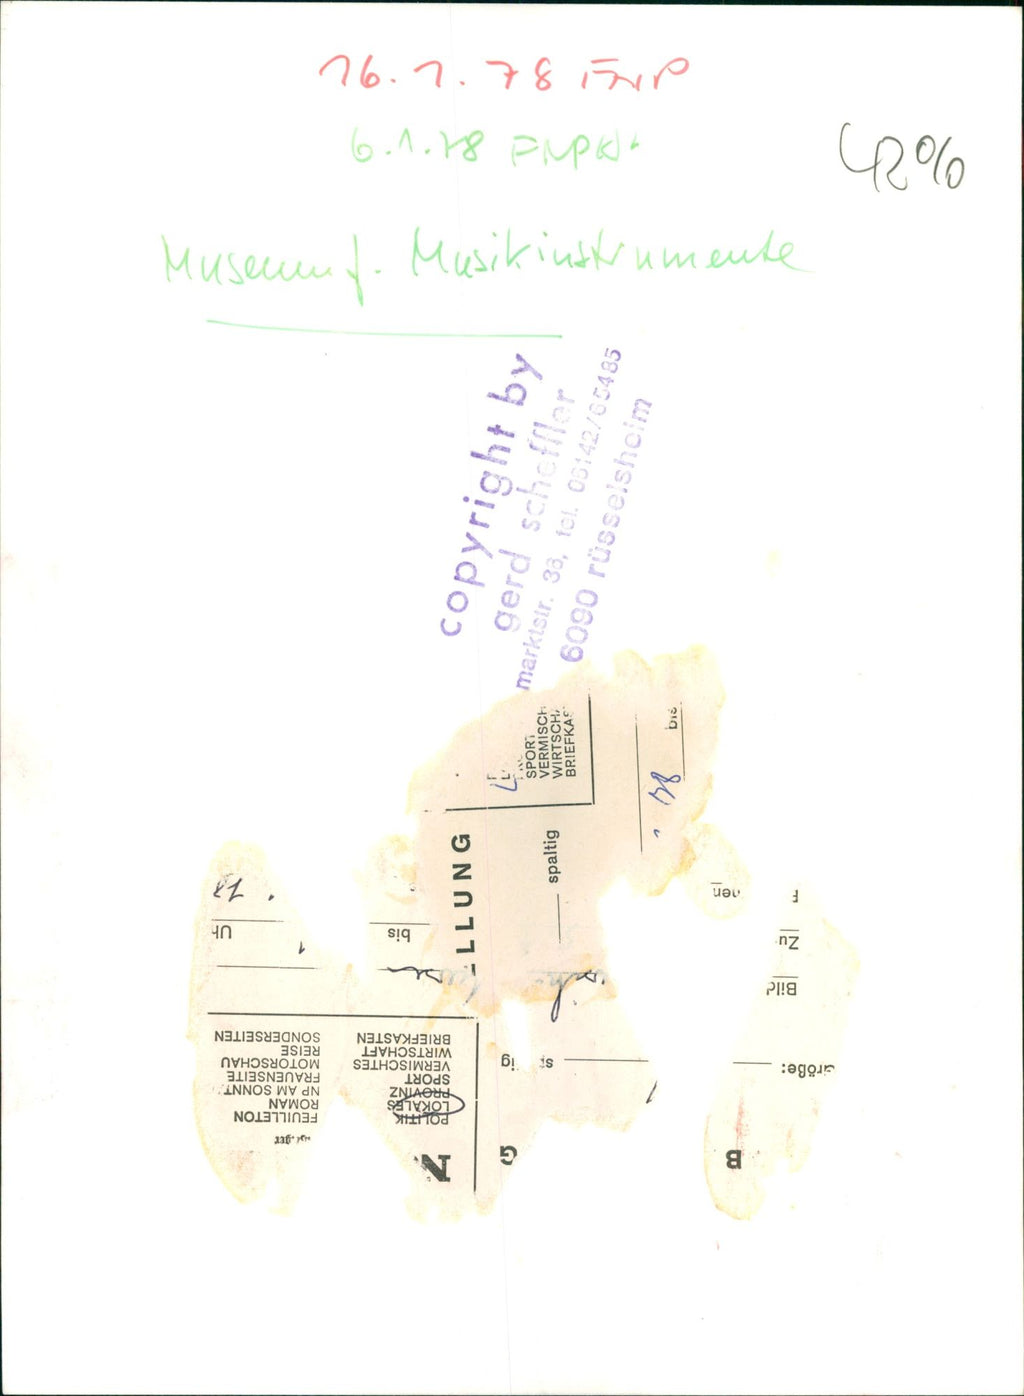 16.1.78 FNP
6.1.78 FNP
42%
Museum f. Musikinstrumente
copyright by
gerd scheffler
marktstr. 38, tel. 06142/65485
6090 rüsselsheim
SPORT
VERMISCH
WIRTSCHA
BRIEFKAS
bis
78
LLUNG
spaltig
nen
F
Zu
Bild
röße:
B
78
Uh
bis
SONDERSEITEN
REISE
MOTORSCHAU
FRAUENSEITE
NP AM SONNT
ROMAN
FEUILLETON
BRIEFKASTEN
WIRTSCHAFT
VERMISCHTES
SPORT
PROVINZ
LOKALES
POLITIK
N
G
sp
ig